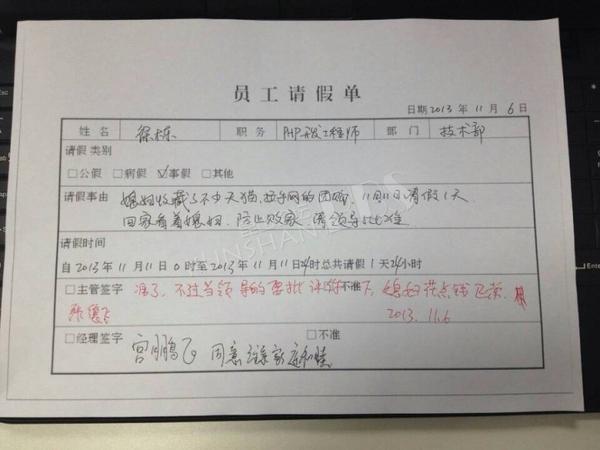 员工请假单
日期 2013 年 11 月 6 日
姓名 徐栋 职务 PHP工程师 部门 技术部
请假 类别
□公假 □病假 ☑事假 □其他
请假事由 媳妇收藏了不少天猫、拉手网的团购，11月11日请假1天
回家看着媳妇，防止败家，请领导批准
请假时间
自 2013 年 11 月 11 日 0 时至 2013 年 11 月 11 日 24 时总共请假 1 天 24 小时
□主管签字 准了，不过当领导的 不准 媳妇花点钱
2013.11.6
□经理签字 □不准
宫鹏飞 同意 家庭和睦